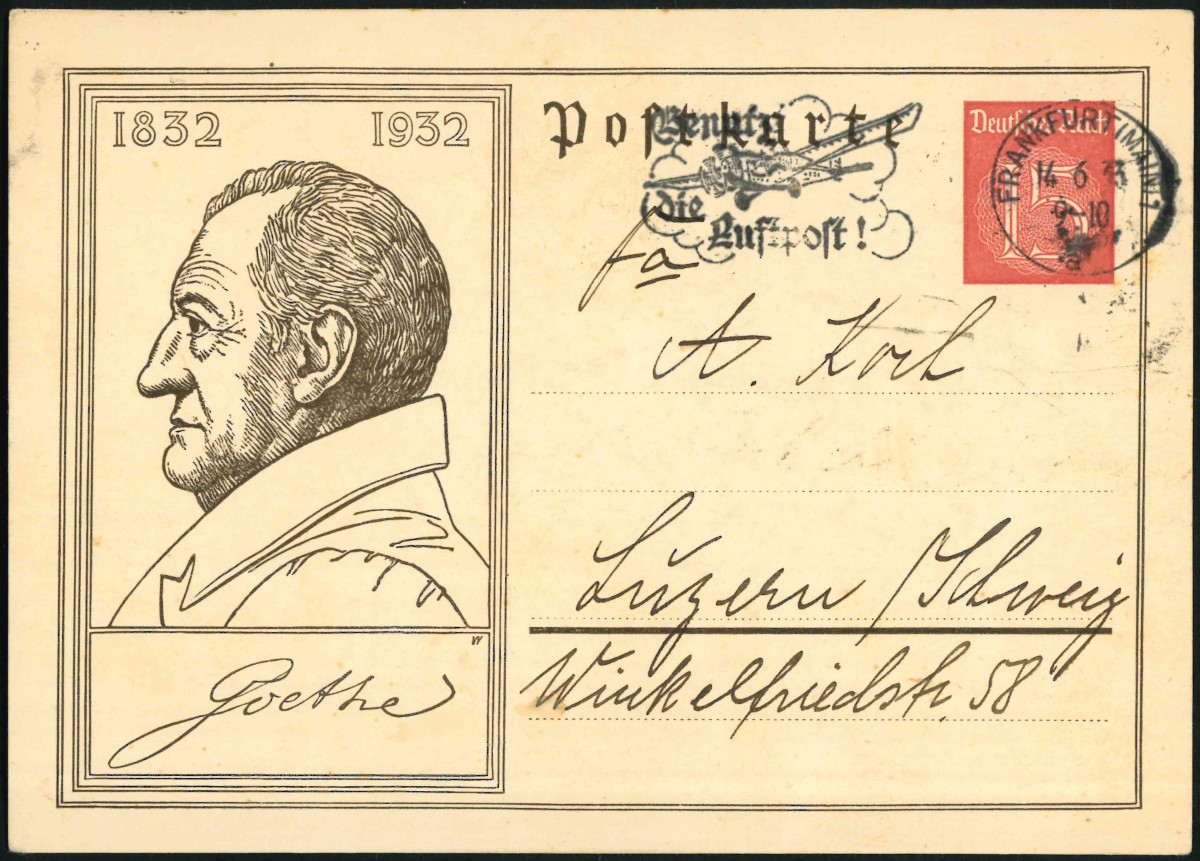 1832 1932
Goethe
Postkarte
Benutzt
die
Luftpost!
Deutsches Reich
15
FRANKFURT (MAIN) 1
14 6 33
9-10
a
fa
A. Koch
Luzern / Schweiz
Winkelfriedstr. 58